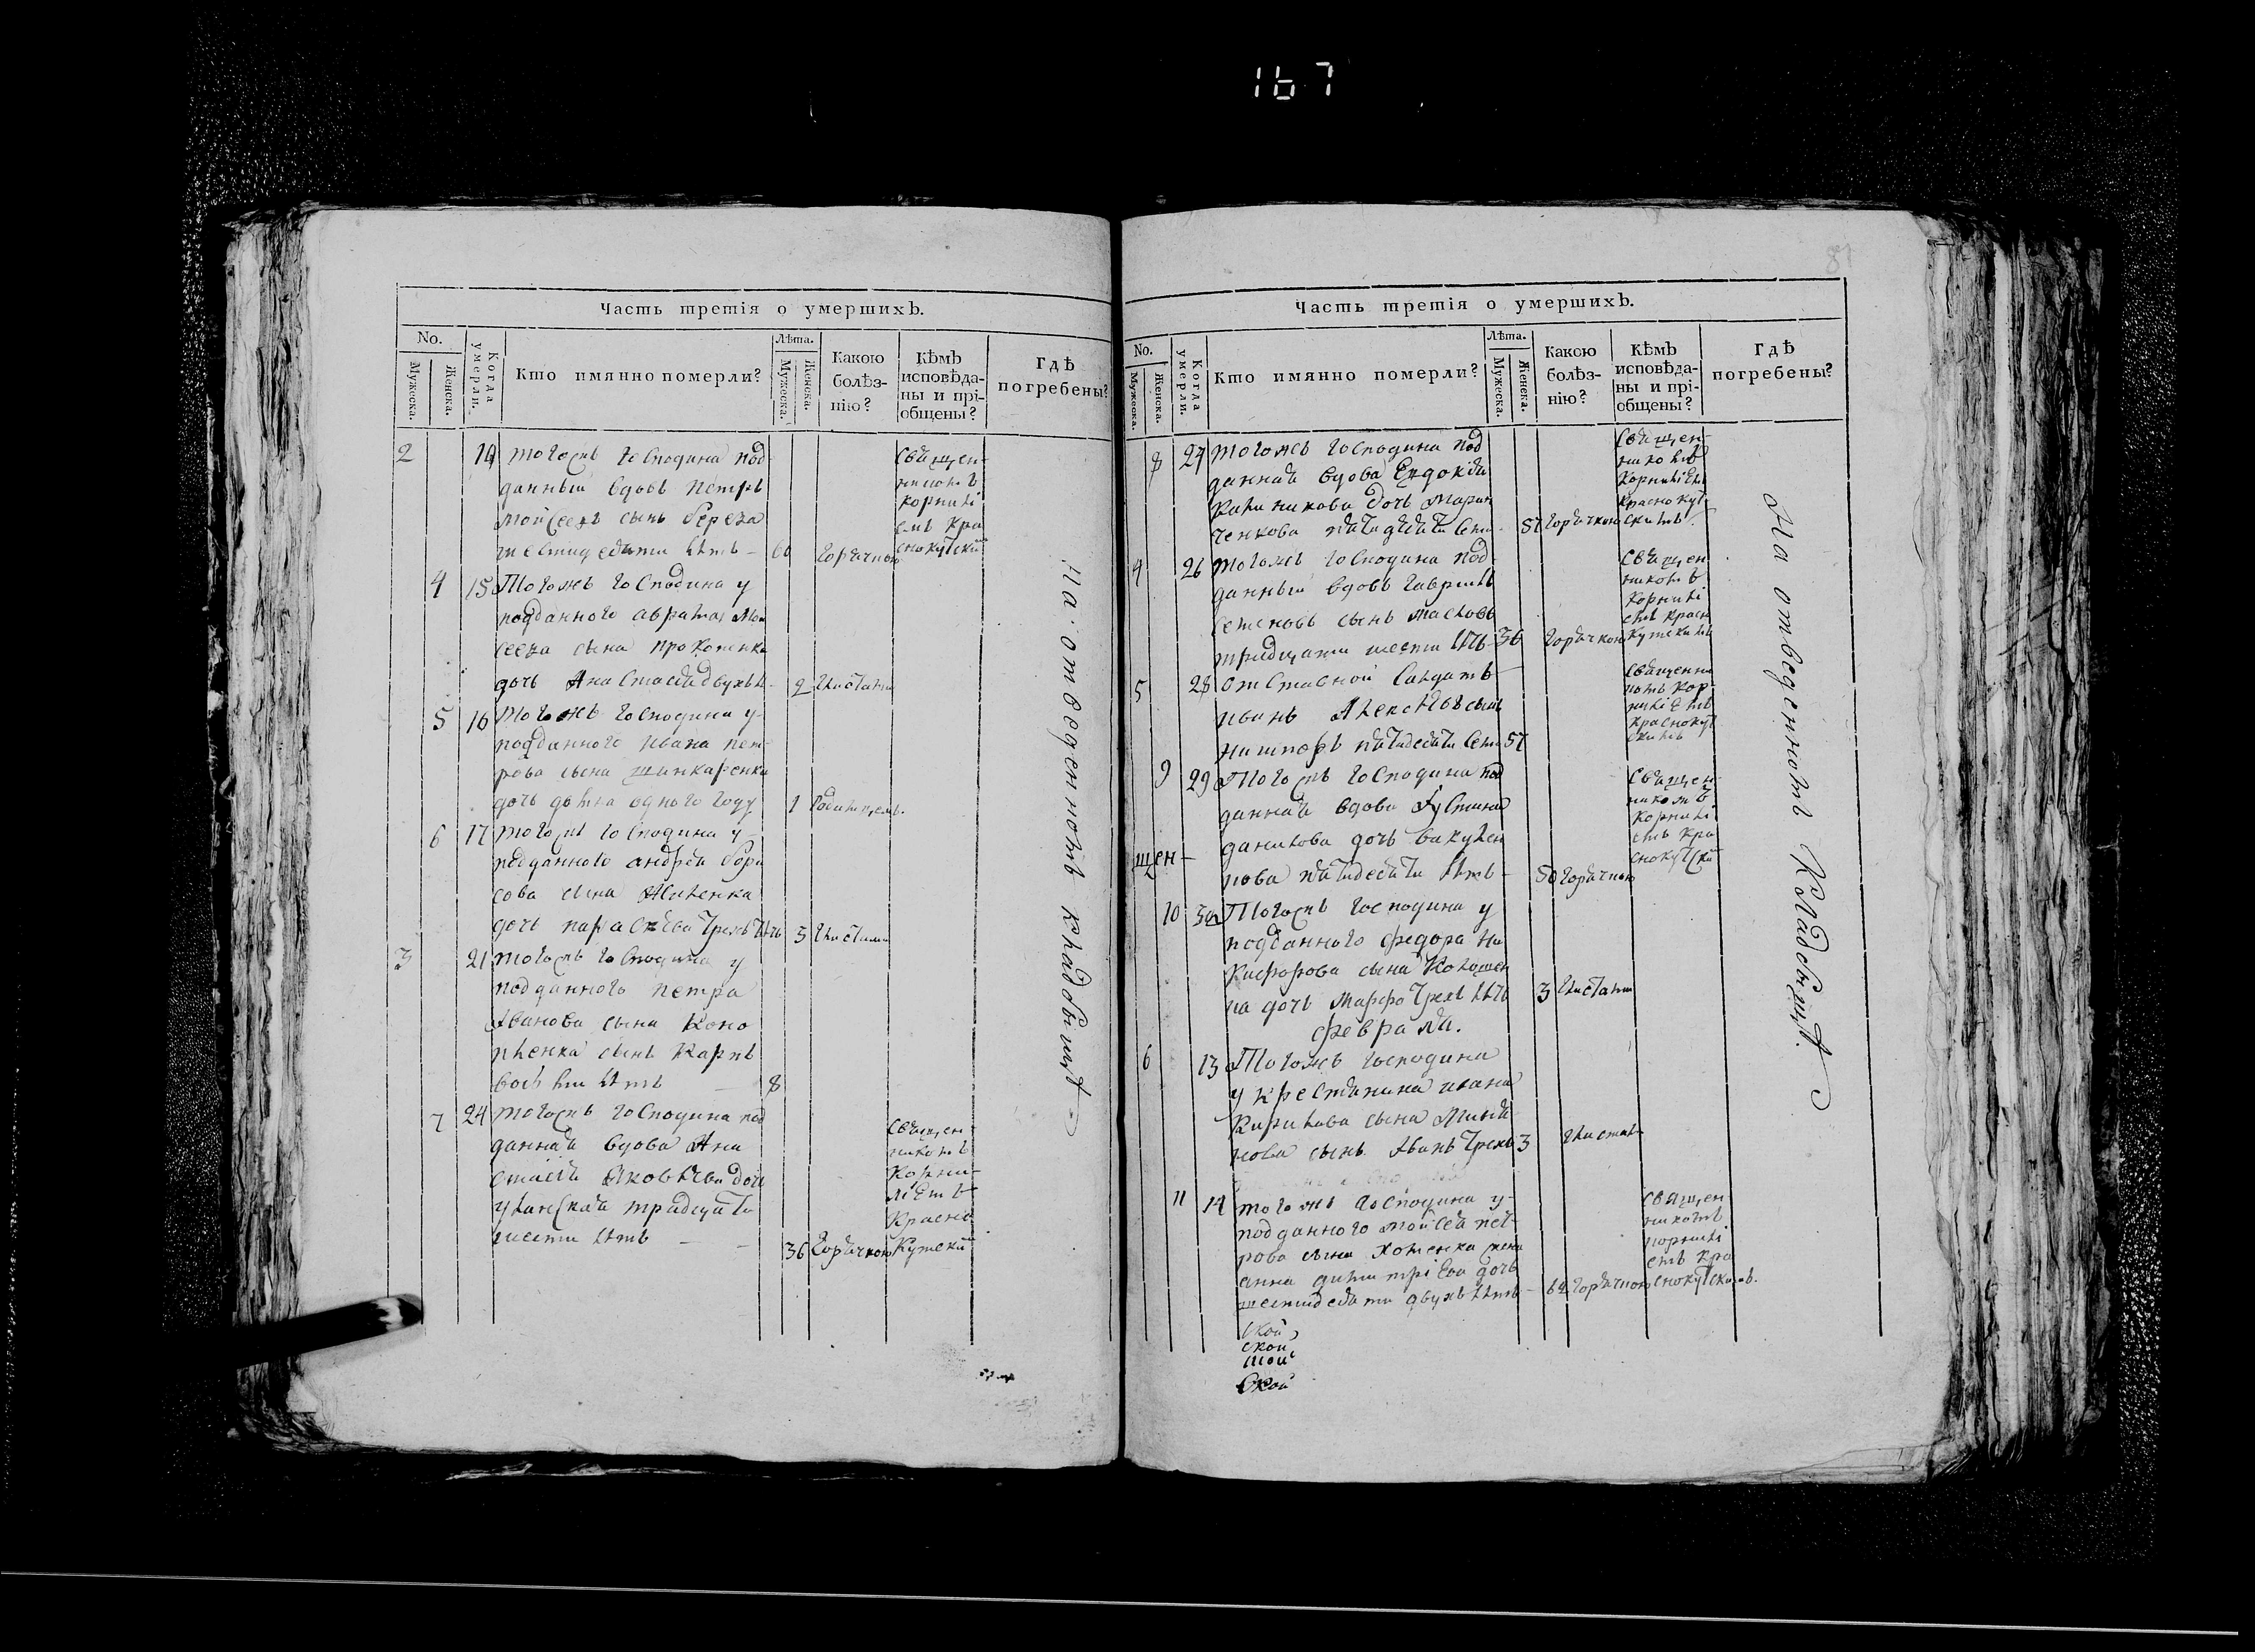 167
81
Часть третія о умершихъ.
No.
Мужеска.
Женска.
Когда умерли.
Кто имянно померли?
Лѣта.
Мужеска.
Женска.
Какою болѣз-
нію?
Кѣмъ
исповѣда-
ны и прі-
общены?
Гдѣ
погребены?
2 14 тогожъ господина под
данный вдовъ петръ
мойсеевъ сынъ береза
шестидесяти лѣтъ - 60 горячкою
Священ-
никомъ
корнилі
емъ Кра
снокутски
4 15 Тогожъ господина у
подданного
сына
дочь Анастасія двухъ 2 глистами
5 16 Тогожъ господина у-
подданного ивана пет-
рова сына шинкаренка
дочь одного году 1 родимцемъ.
6 17 тогожъ господина у-
подданного андрея бори
сова сына
дочь трехъ лѣтъ 3 глистами
3 21 тогожъ господина у
подданного петра
Иванова сына Коно
пленка сынъ Карпъ
восьми лѣтъ - 8
7 24 тогожъ господина под
данная вдова Ана
стасія Яковлева дочь
тридцати
шести лѣтъ - - 36 горячкою
Священ
никомъ
Корни-
ліемъ
Красно
Кутски
На отведенномъ кладбищѣ
Часть третія о умершихъ.
No.
Мужеска.
Женска.
Когда умерли.
Кто имянно померли?
Лѣта.
Мужеска.
Женска.
Какою болѣз-
нію?
Кѣмъ
исповѣда-
ны и прі-
общены?
Гдѣ
погребены?
8 24 тогожъ господина под
данная вдова Евдокія
дочь Марин
ченкова пятидесяти семи 57 горячкою
Священ-
никомъ
Корниліемъ
краснокут
скимъ.
4 26 тогожъ господина под-
данный вдовъ гаврилъ
семеновъ сынъ масловъ
тридцати шести лѣтъ 36 горячкою
Священ
никомъ
Корнилі
емъ красн
кутскимъ
5 28 отставной салдатъ
иванъ Алексѣевъ сынъ
пятидесяти семи 57
Священни
комъ кор-
ниліемъ
краснокут
скимъ
9 29 Тогожъ господина под
данная вдова Іустина
данилова дочь бакулен
кова пятидесяти лѣтъ - 50 горячкою
щен-
Священ
никомъ
Корнилі
емъ Кра
снокутски
10 30 Тогожъ господина у
подданного федора Ни
кифорова сына
дочь марфа трехъ лѣтъ 3 глистами
февраля.
6 13 Тогожъ господина
у крестянина ивана
Кирилова сына
нова сынъ Иванъ трехъ 3 глистами
11 14 тогожъ господина у-
подданного мойсея пет-
рова сына жена
анна димитріева дочь
шестидесяти двухъ лѣтъ - 62 горячкою
Священ
никомъ
корнилі
емъ Кра
снокутскимъ.
ской
ской
ской
На отведенномъ Кладбищѣ.